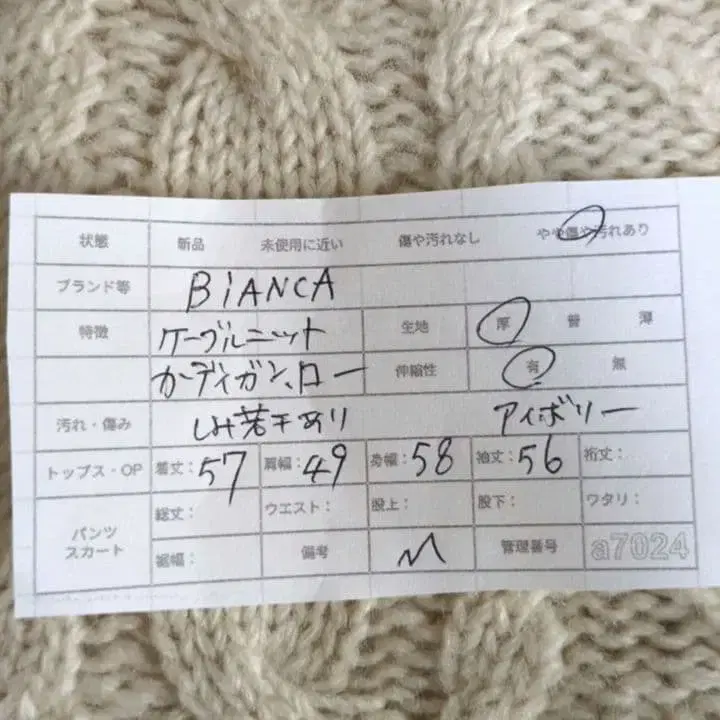 状態 新品 未使用に近い 傷や汚れなし やや傷や汚れあり
ブランド等 BiANCA
特徴 ケーブルニット 生地 厚 普 薄
カーディガン、ロー 伸縮性 有 無
汚れ・傷み しみ若干あり アイボリー
トップス・OP 着丈:57 肩幅:49 身幅:58 袖丈:56 裄丈:
パンツ スカート 総丈: ウエスト: 股上: 股下: ワタリ:
裾幅: 備考 M 管理番号 a7024